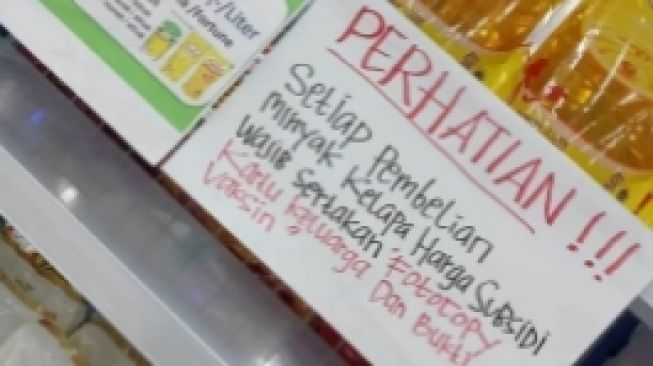 /Liter
PERHATIAN !!!
Setiap Pembelian
Minyak Kelapa Harga Subsidi
Wajib Sertakan "Fotocopy
Kartu Keluarga Dan Bukti
Vaksin"